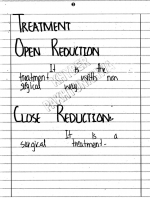 TREATMENT
OPEN REDUCTION
It is the
treatment with non
sirgical way.
CLOSE REDUCTION:
It is a
surgical treatment.